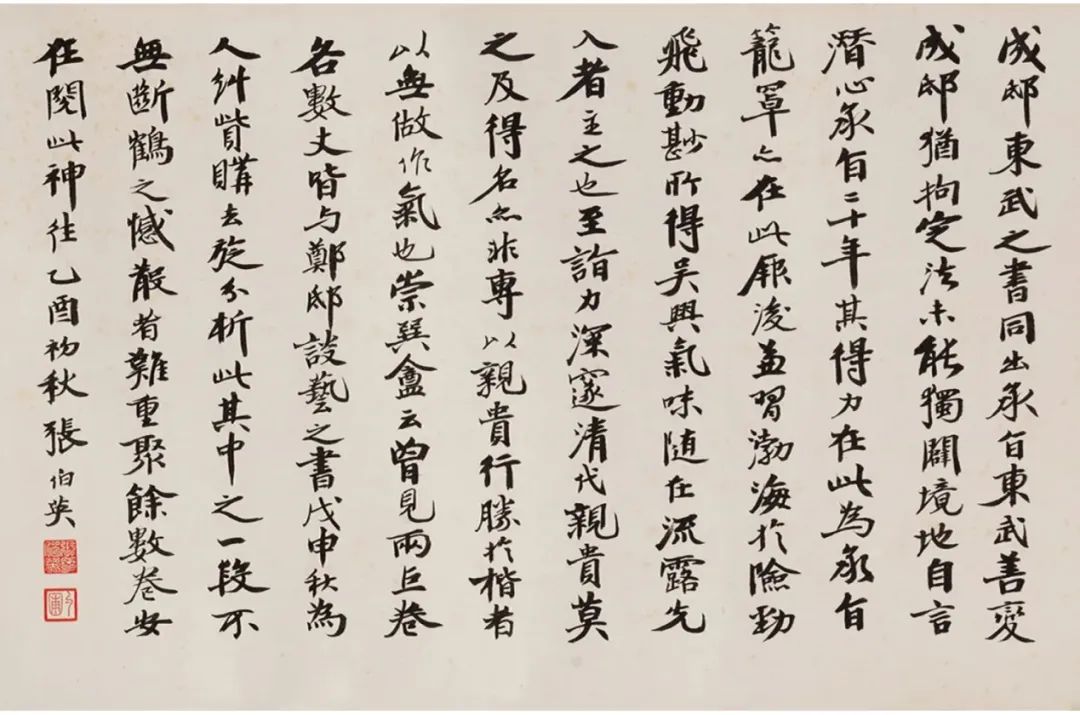 成邸東武之書同出承旨東武善變
成邸猶拘定法未能獨闢境地自言
潛心承旨二十年其得力在此為承旨
籠罩亦在此厥後兼習渤海於險勁
飛動尠所得吳興氣味随在流露先
入者主之也至詣力深邃清代親貴莫
之及得名亦非專以親貴行勝於楷者
以無做作氣也崇巽盦云曾見兩巨卷
各數丈皆与鄭邸談藝之書戊申秋為
人糾貲購去旋分析此其中之一段不
無斷鶴之憾散者難重聚餘數卷安
在閱此神往乙酉初秋張伯英